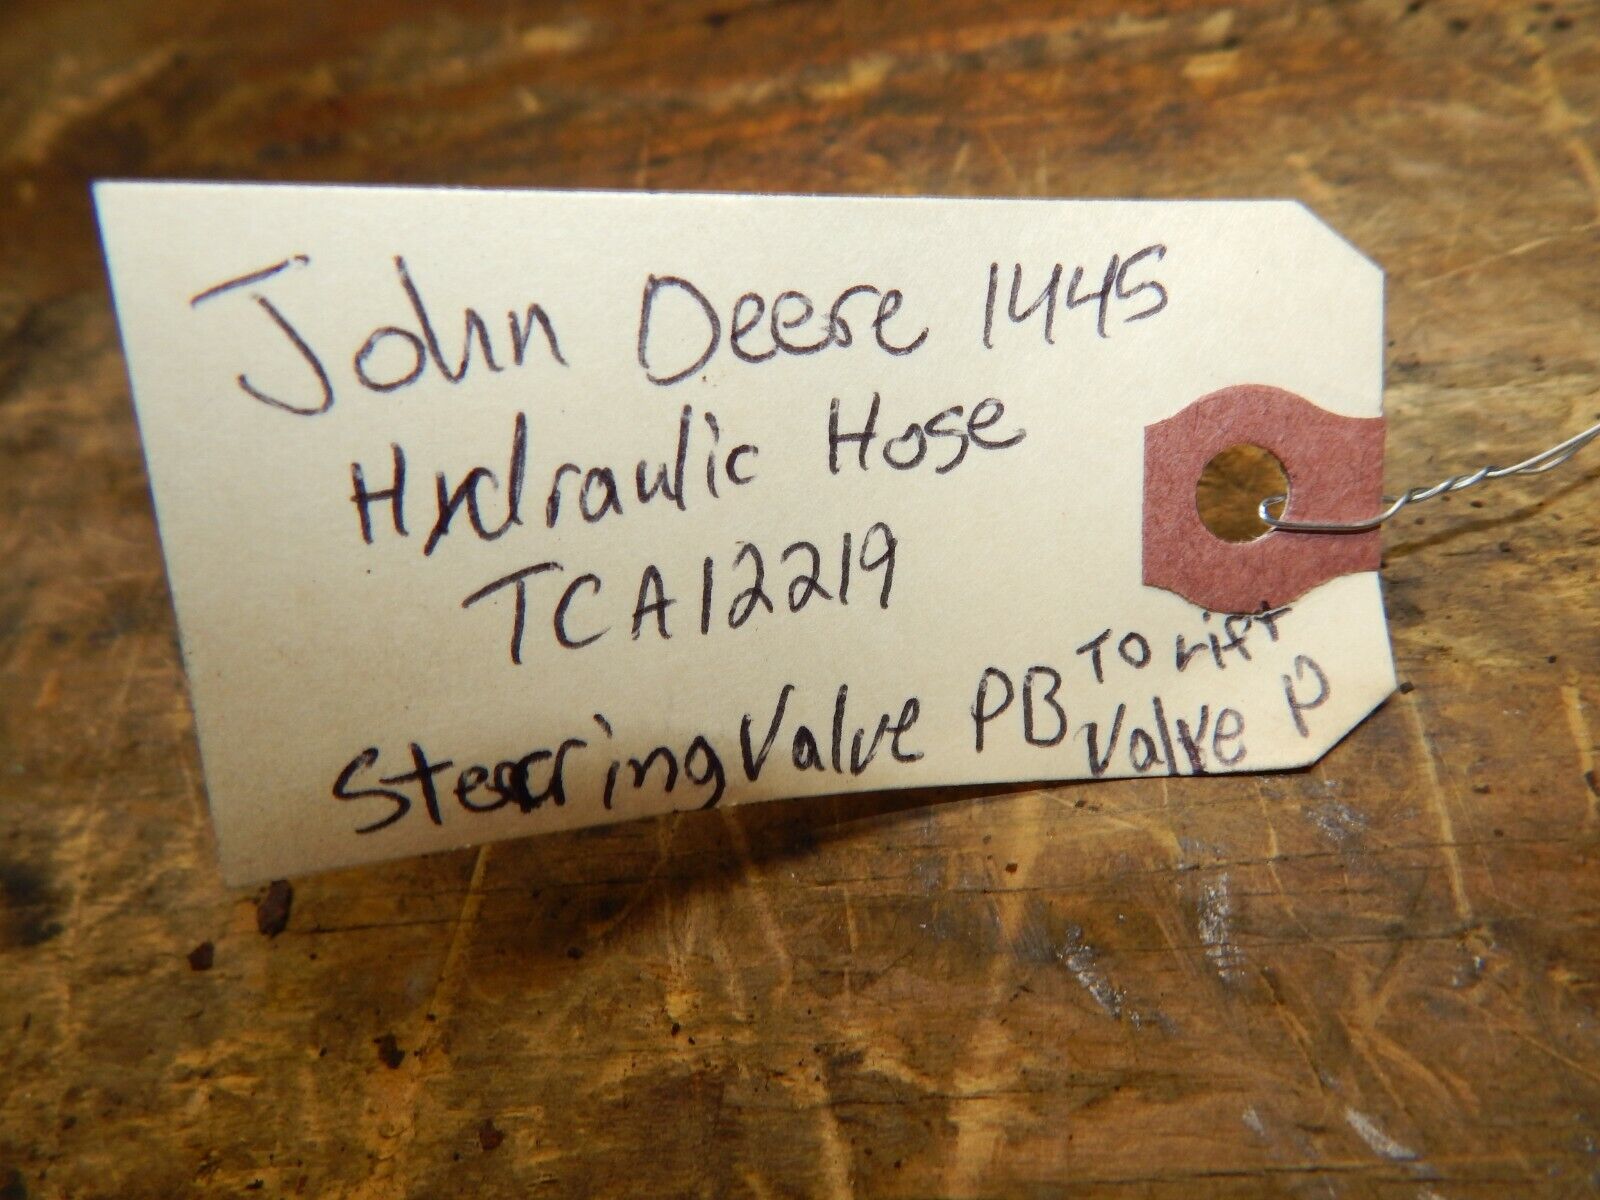 John Deere 1445
Hydraulic Hose
TCA12219
Steering Valve PB To Lift
Valve P